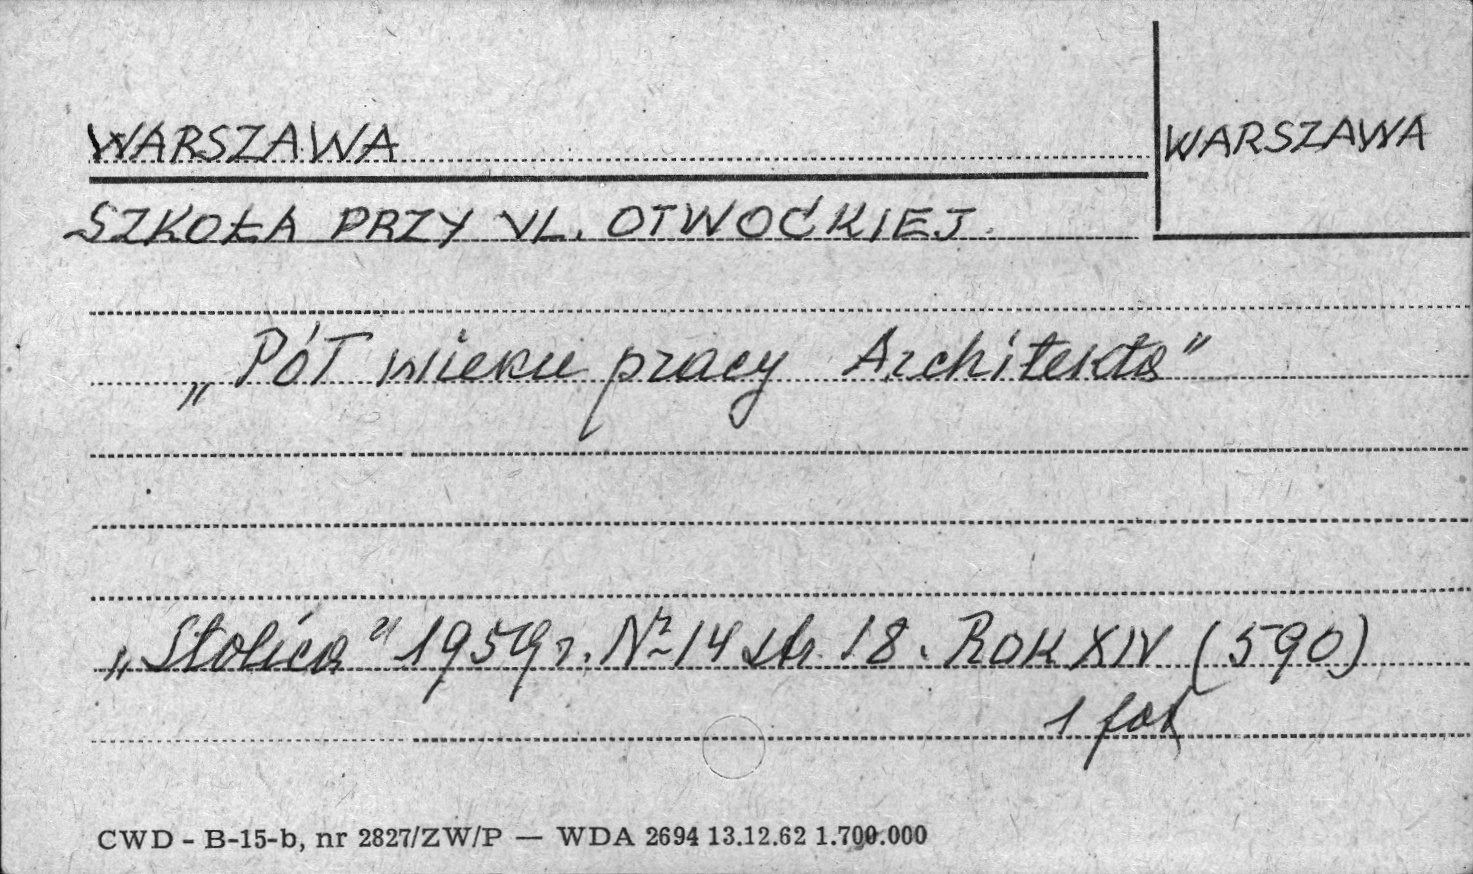 WARSZAWA
WARSZAWA
SZKOŁA PRZY UL. OTWOCKIEJ.
„Pół wieku pracy Architekta"
„Stolica" 1959 r. Nr 14 str. 18. ROK XIV (590)
1 fot
CWD - B-15-b, nr 2827/ZW/P — WDA 2694 13.12.62 1.700.000